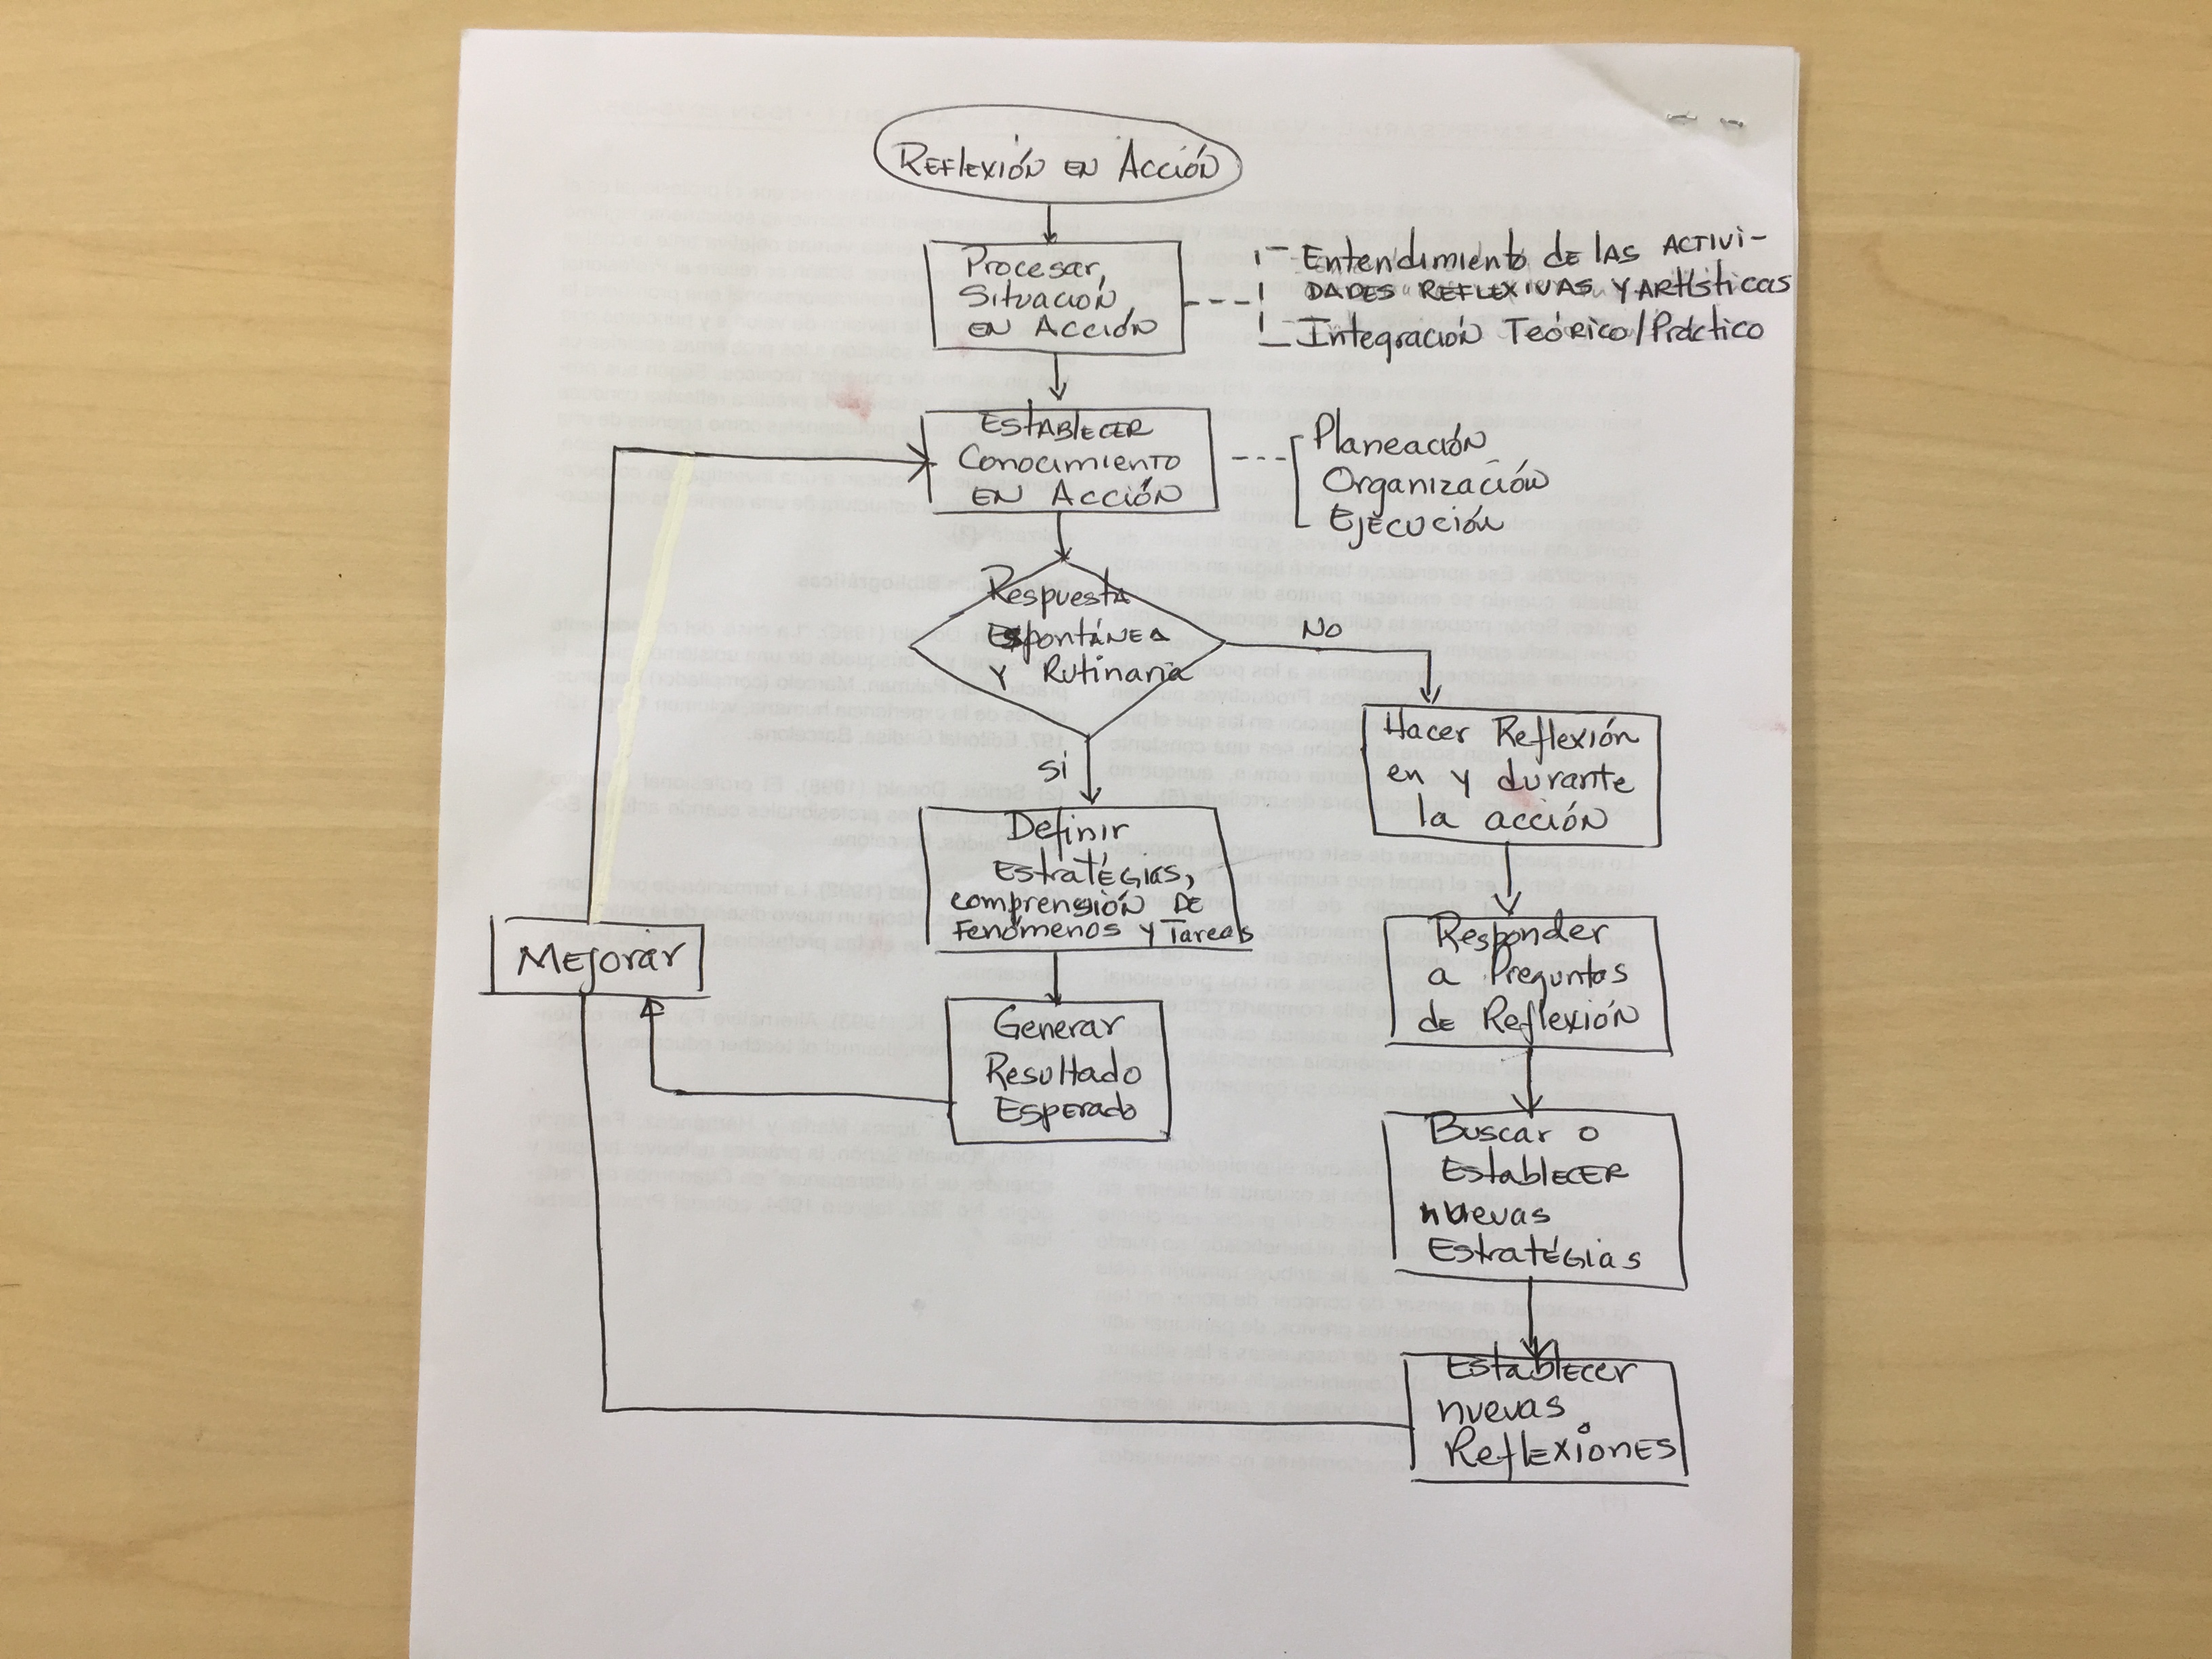 REFLEXIÓN EN ACCIÓN
Procesar,
Situación
EN ACCIÓN
Entendimiento de las ACTIVI-
DADES REFLEXIVAS Y ARtísticas
Integración Teórico/Práctico
EStABlECER
Conocimiento
EN ACCIÓN
Planeación
Organización
EJECUCIÓN
Respuesta
Espontánea
Y Rutinaria
No
Si
Hacer Reflexión
en y durante
la acción
Definir
Estratégias,
comprensión DE
Fenómenos y Tareas
Mejorar
Responder
a Preguntas
de Reflexión
Generar
Resultado
Esperado
Buscar o
EstablECER
nuevas
Estratégias
Establecer
nuevas
Reflexiones